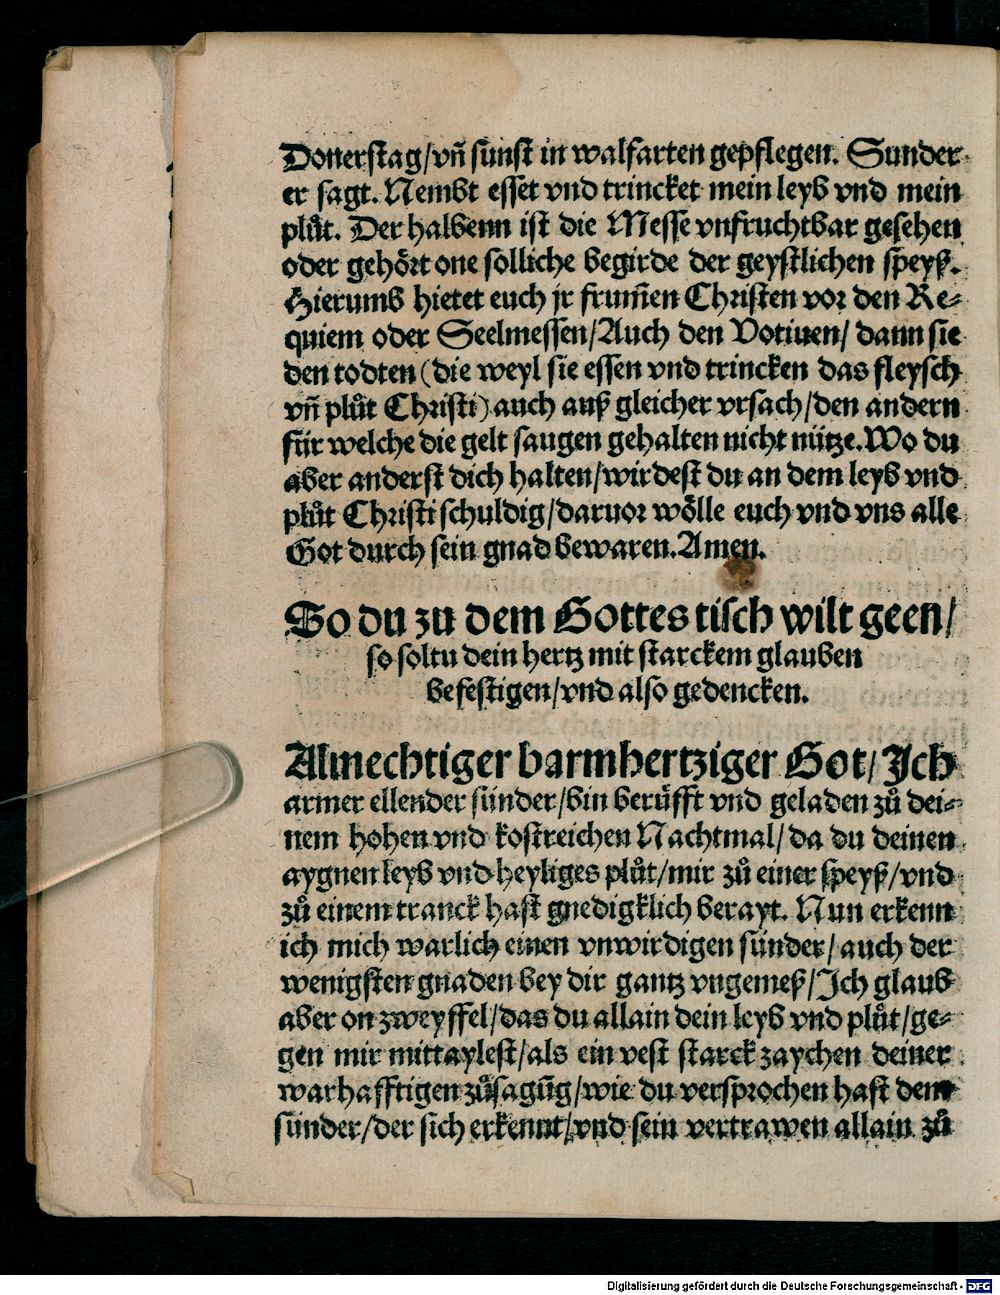 Donerstag/vñ sunst in walfarten gepflegen. Sunder
er sagt. Nembt esset vnd trincket mein leyb vnd mein
plůt. Der halbenn ist die Messe vnfruchtbar gesehen
oder gehört one solliche begirde der geystlichen speyß.
Hierumb hietet euch jr frum̃en Christen vor den Re⸗
quiem oder Seelmessen/Auch den Votiuen/ dann sie
den todten (die weyl sie essen vnd trincken das fleysch
vñ plůt Christi) auch auß gleicher vrsach/den andern
für welche die gelt saugen gehalten nicht nütze. Wo du
aber anderst dich halten/wirdest du an dem leyb vnd
plůt Christi schuldig/daruor wölle euch vnd vns alle
Got durch sein gnad bewaren. Amen.
So du zu dem Gottes tisch wilt geen/
so soltu dein hertz mit starckem glauben
befestigen/vnd also gedencken.
Almechtiger barmhertziger Got/Ich
armer ellender sünder/bin berüfft vnd geladen zů dei⸗
nem hohen vnd kostreichen Nachtmal/da du deinen
aygnen leyb vnd heyliges plůt/mir zů einer speyß/vnd
zů einem tranck hast gnedigklich berayt. Nun erkenn
ich mich warlich einen vnwirdigen sünder/auch der
wenigsten gnaden bey dir gantz vngemeß/Ich glaub
aber on zweyffel/das du allain dein leyb vnd plůt/ge⸗
gen mir mittaylest/als ein vest starck zaychen deiner
warhafftigen zůsagũg/wie du versprochen hast dem
sünder/der sich erkennt/vnd sein vertrawen allain zů
Digitalisierung gefördert durch die Deutsche Forschungsgemeinschaft - DFG